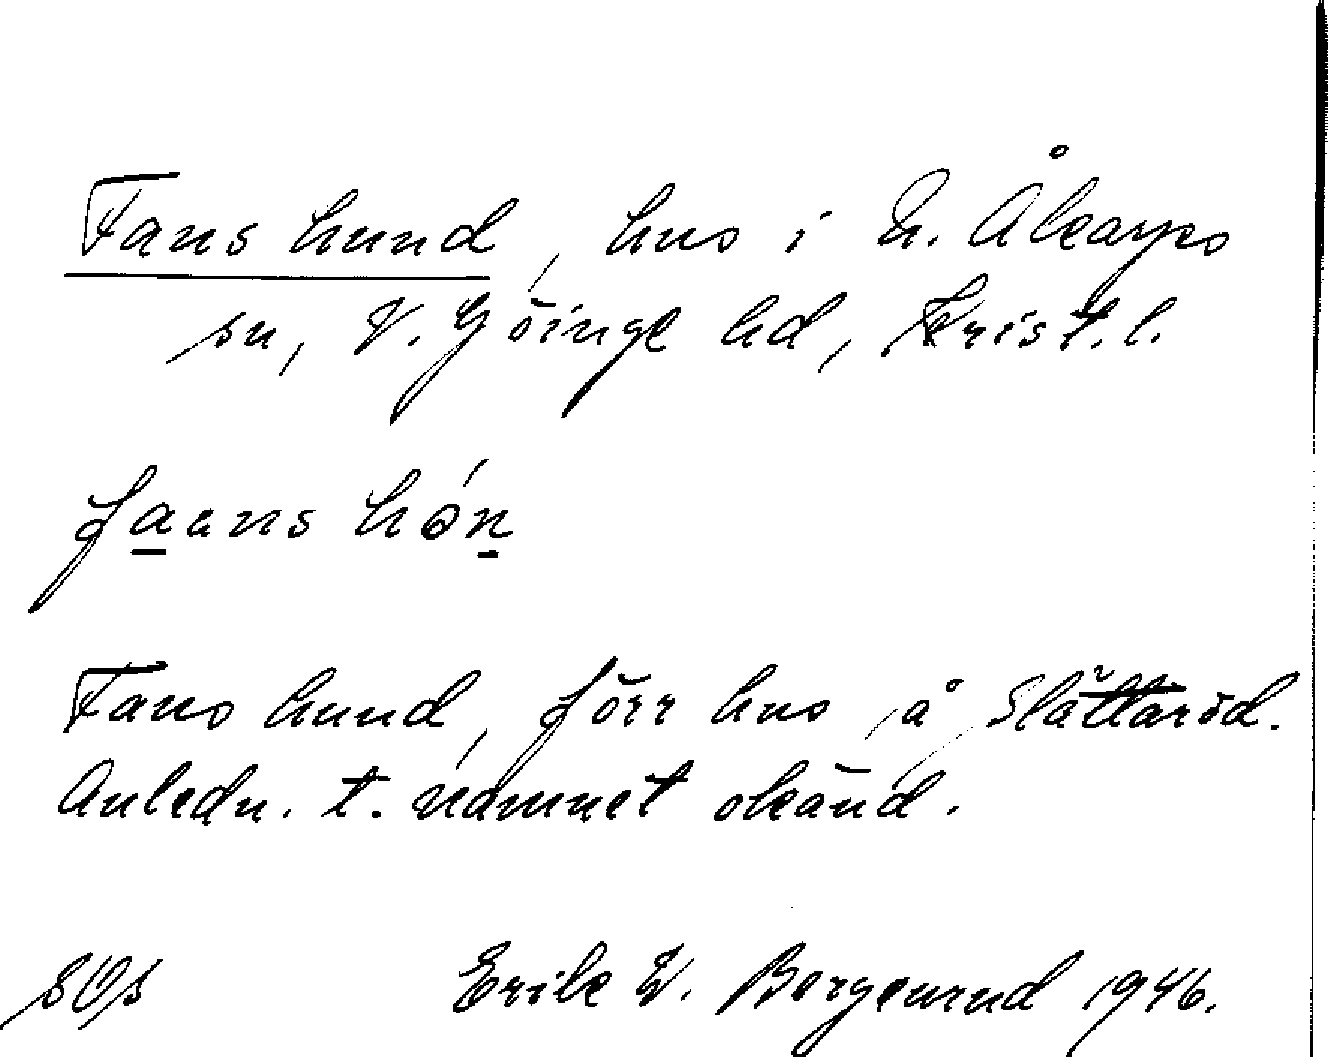 Fans hund, hus i N. Åkarps
sn, V. Göinge hd, Krist. l.
faans hón
Fans hund, förr hus på Slättaröd.
Anledn. t. namnet okänd.
Erik W. Borgenrud 1946.